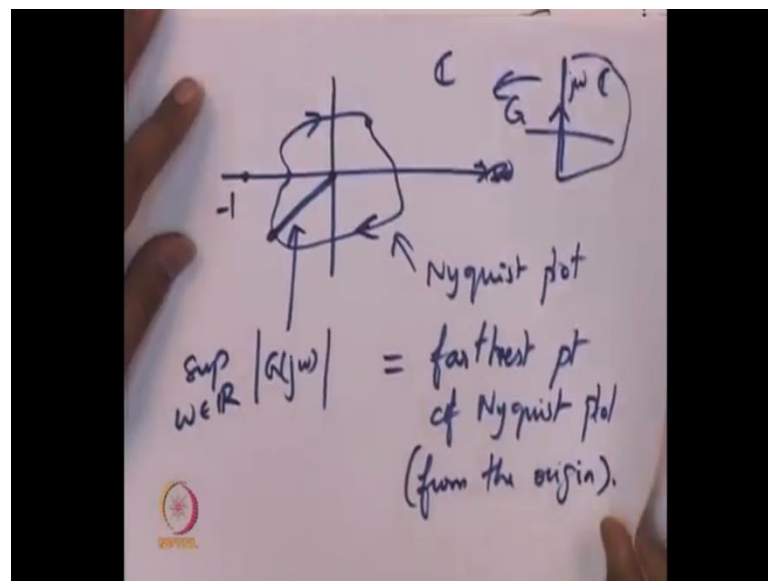 ℂ
jω ℂ
G
-1
Nyquist plot
sup |G(jω)| = farthest pt
ω∈ℝ
of Nyquist plot
(from the origin).
NPTEL